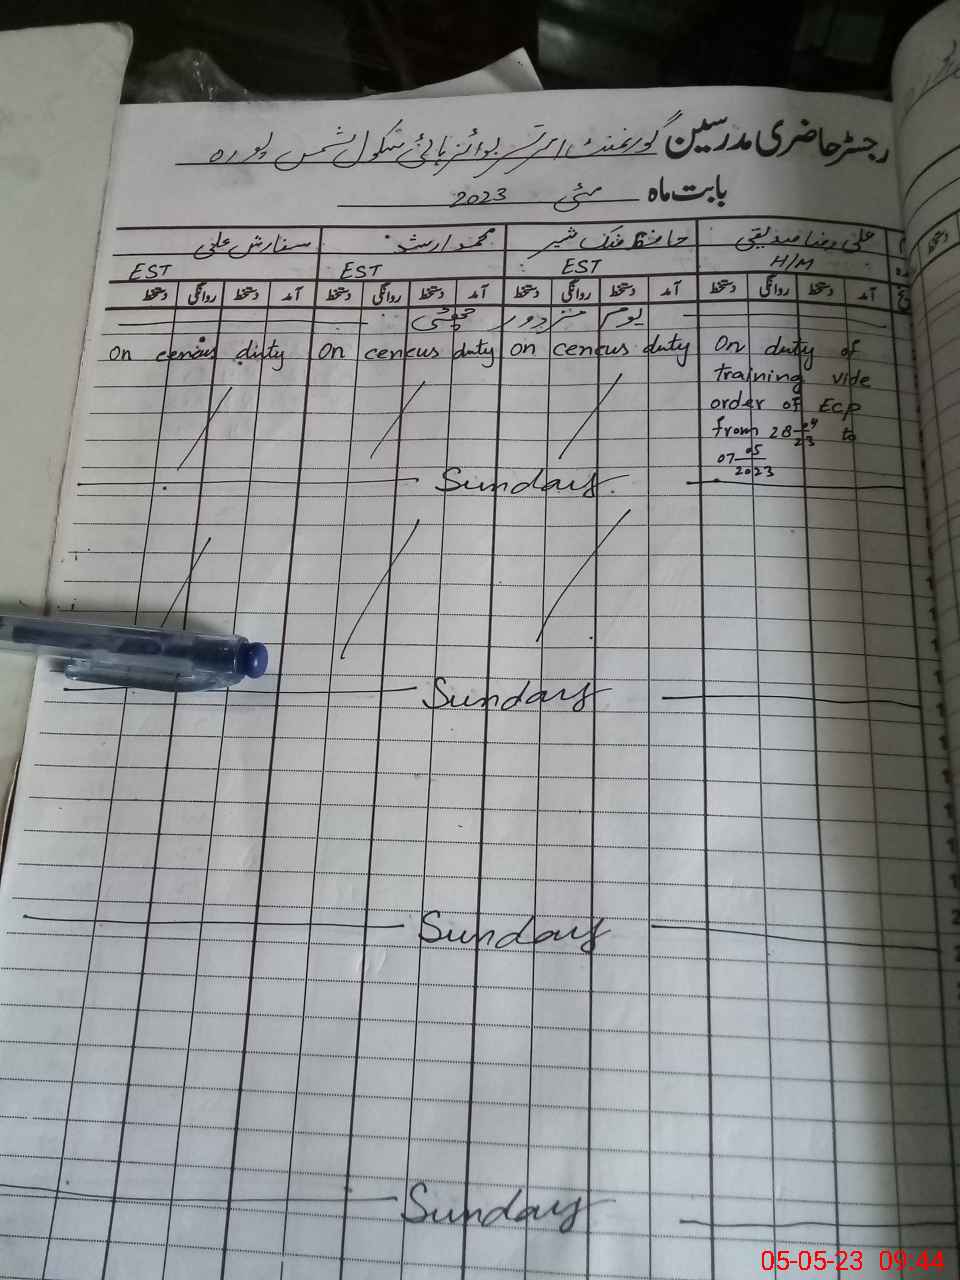 رجسٹر حاضری مدرسین گورنمنٹ بوائز ہائی سکول شمس پورہ
بابت ماہ مئی 2023
علی رضا صدیقی حافظ ملک شیر محمد ارشد سفارش علی
H/M EST EST EST
آمد دستخط روانگی دستخط آمد دستخط روانگی دستخط آمد دستخط روانگی دستخط آمد دستخط روانگی دستخط
یوم مزدور چھٹی
On cencus duty On cencus duty on cencus duty On duty of
training vide
order of ECP
from 28 04/23 to
07 05/2023
Sunday
Sunday
Sunday
Sunday
05-05-23 09:44